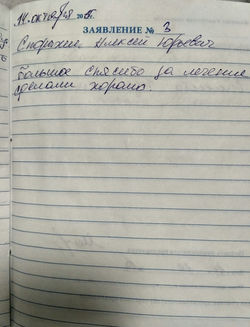 14 октября 20
ЗАЯВЛЕНИЕ № 3
Алексей Юрьевич
большое спасибо за лечение
сделали хорошо.